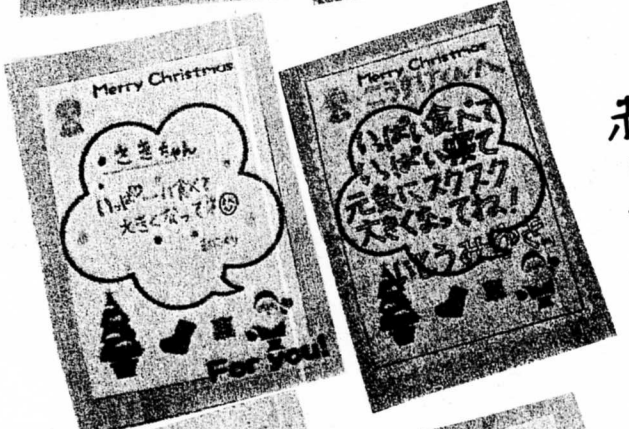 Merry Christmas
さきちゃん
いっぱい食べて
大きくなってね
For you!
Merry Christmas
いっぱい食べて
いっぱい寝て
元気にスクスク
大きくなってね!